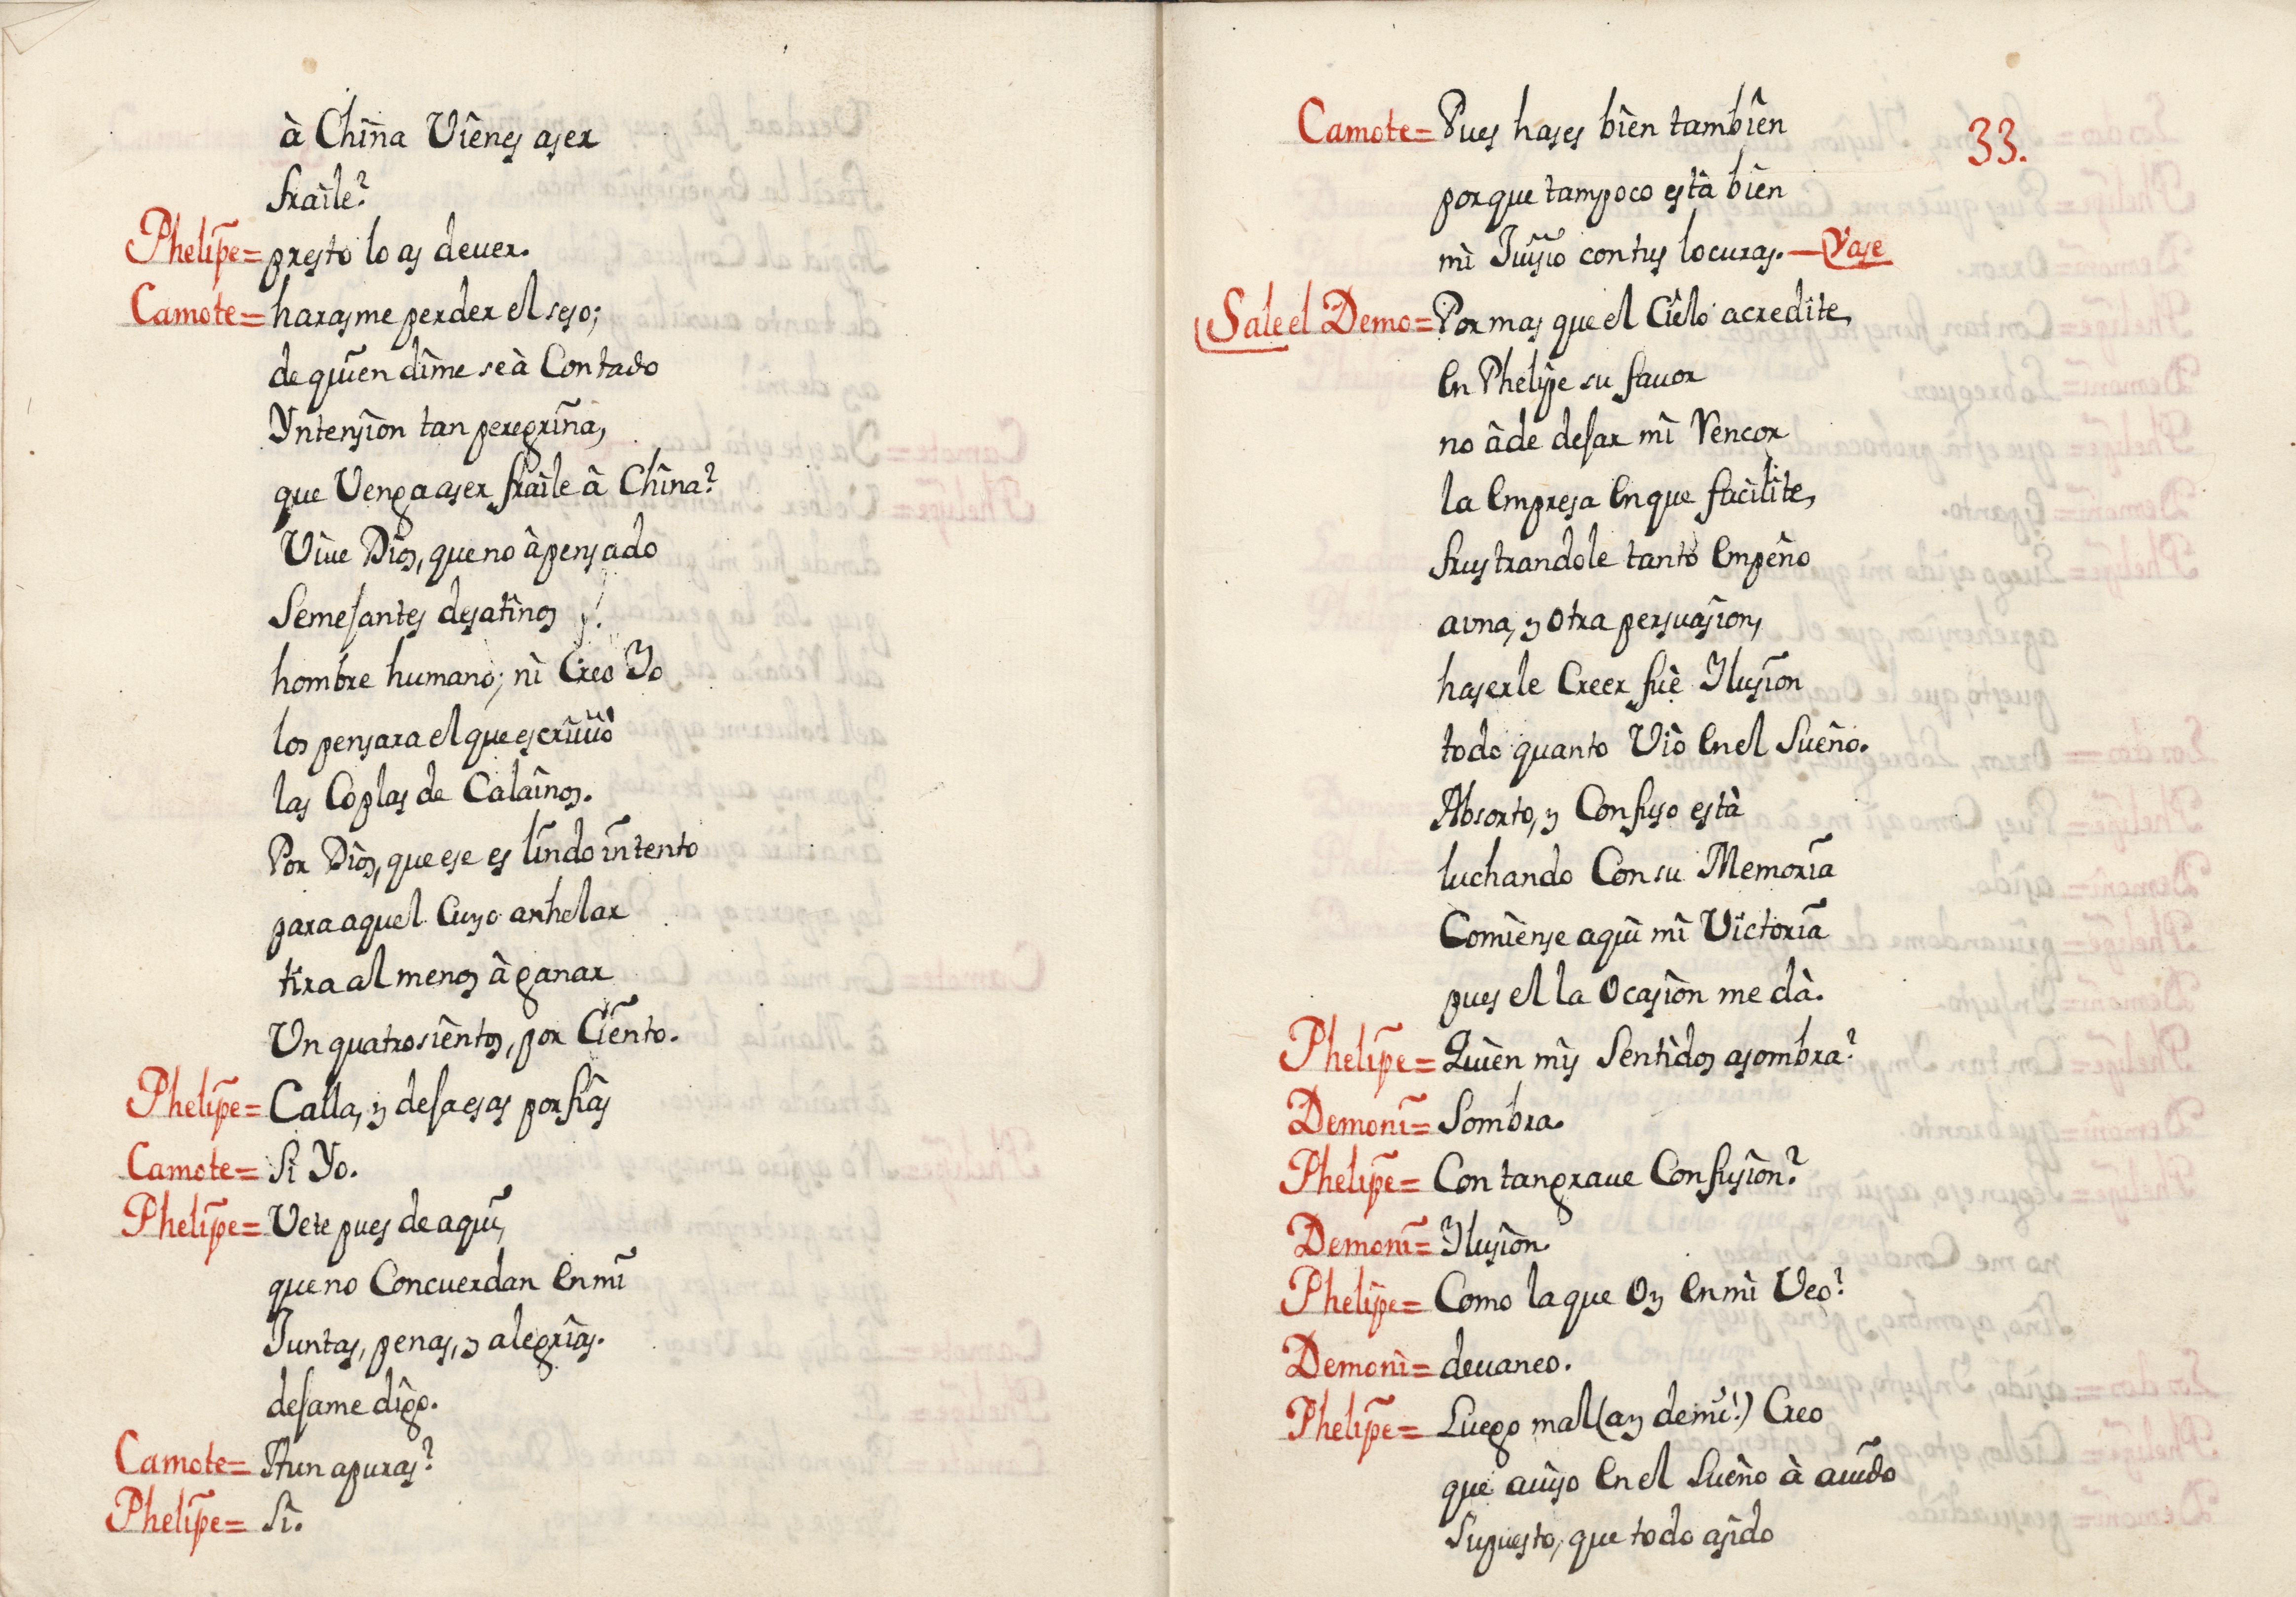 à China Vienes aser
fraile?
Phelipe= presto lo as deuer.
Camote= harasme perder el seso;
de quien dime seà Contado
Yntension tan peregrina,
que Venga aser fraile â China?
Viue Dios, que no âpensado
Semesantes desatinos
hombre humano; ni Creo Yo
los pensara el que escriuiò
las Coplas de Calainos.
Por Dios, que ese es lindo intento
para aquel Cuyo anhelar
tira al menos â ganar
Un quatrosientos, por Ciento.
Phelipe= Calla, y desa esas porfias
Camote= Si Yo.
Phelipe= Vete pues de aqui,
que no Concuerdan en mi
Juntas, penas, y alegrias.
desame digo.
Camote= Aun apuras?
Phelipe= Si.
33.
Camote= Pues hases bien tambien
porque tampoco està bien
mi Juisio con tus locuras. — Vase
Sale el Demo= Por mas que el Cielo acredite,
en Phelipe su fauor
no âde desar mi Rencor
la empresa en que facilite,
frustrandole tanto empeño
a vna, y otra persuasion,
haserle Creer fuè Ylusion
todo quanto Viò en el Sueño.
Absorto, y Confuso està
luchando Con su Memoria
Comiense aqui mi Victoria
pues el la Ocasion me dà.
Phelipe= Quien mis Sentidos asombra?
Demoni= Sombra.
Phelipe= Con tan graue Confusion?
Demoni= Ylusion.
Phelipe= Como la que Oy en mi Veo?
Demoni= deuaneo.
Phelipe= Luego mal (ay de mi!) Creo
que auiso en el Sueño à auido
Supuesto, que todo asido